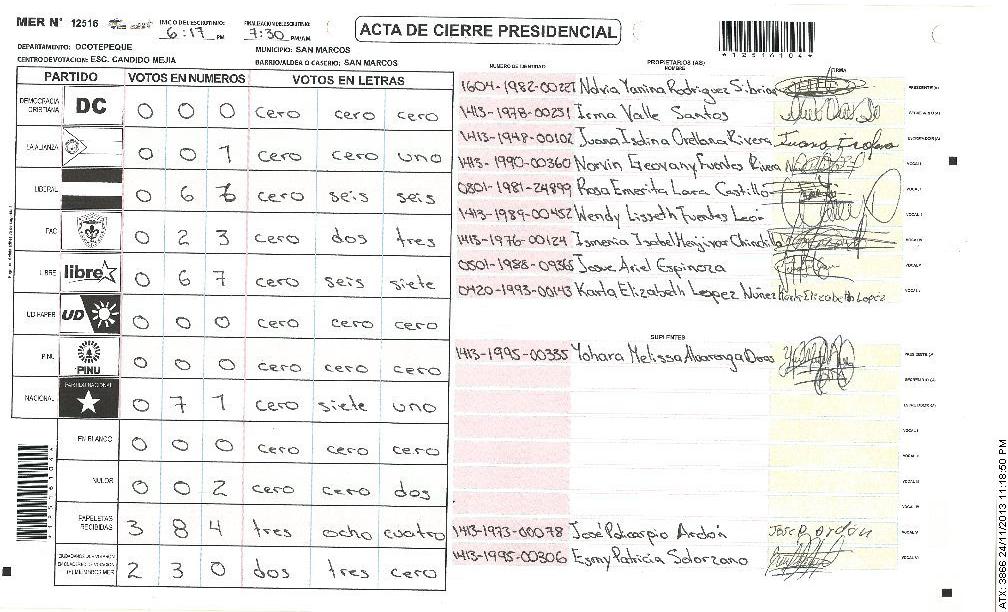 MER N° 12516 INICO DEL ESCRUTINIO: 6:17 PM FINALIZACION DEL ESCRUTINIO: 7:30 PM/AM
ACTA DE CIERRE PRESIDENCIAL
DEPARTAMENTO: OCOTEPEQUE MUNICIPIO: SAN MARCOS
CENTRO DE VOTACION: ESC. CANDIDO MEJIA BARRIO/ALDEA O CASERIO: SAN MARCOS
PARTIDO VOTOS EN NUMEROS VOTOS EN LETRAS
DEMOCRACIA CRISTIANA DC 0 0 0 cero cero cero
LA ALIANZA 0 0 1 cero cero uno
LIBERAL 0 6 6 cero seis seis
PAC 0 2 3 cero dos tres
LIBRE libre 0 6 7 cero seis siete
UD FAPER UD 0 0 0 cero cero cero
PINU PINU 0 0 0 cero cero cero
NACIONAL PARTIDO NACIONAL 0 7 1 cero siete uno
EN BLANCO 0 0 0 cero cero cero
NULOS 0 0 2 cero cero dos
PAPELETAS RECIBIDAS 3 8 4 tres ocho cuatro
2 3 0 dos tres cero
NUMERO DE IDENTIDAD PROPIETARIOS (AS) NOMBRE FIRMA
1604-1982-00227 Nolvia Yanina Rodriguez Sibrian PRESIDENTE(A)
1413-1978-00251 Irma Valle Santos SECRETARIO(A)
1413-1948-00102 Juana Isolina Orellana Rivera ESCRUTADOR(A)
1413-1990-00360 Norvin Geovany Fuentes Rivera VOCAL I
0801-1981-24899 Rosa Emerita Lara Castillo
1413-1989-00452 Wendy Lisseth Fuentes Leon
1413-1976-00124 Ismenia Isabel Menjivar Chinchilla
0501-1988-09365 Josue Ariel Espinoza
0420-1993-00143 Karla Elizabeth Lopez Nuñez Karla Elizabeth Lopez
SUPLENTES
1413-1995-00335 Yohara Melissa Alvarenga Dogs PRESIDENTE(A)
SECRETARIO(A)
ESCRUTADOR(A)
1413-1973-00078 José Policarpio Ardón José P Ardón
1413-1995-00306 Esmy Patricia Solorzano
ATX: 3866 24/11/2013 11:18:50 PM